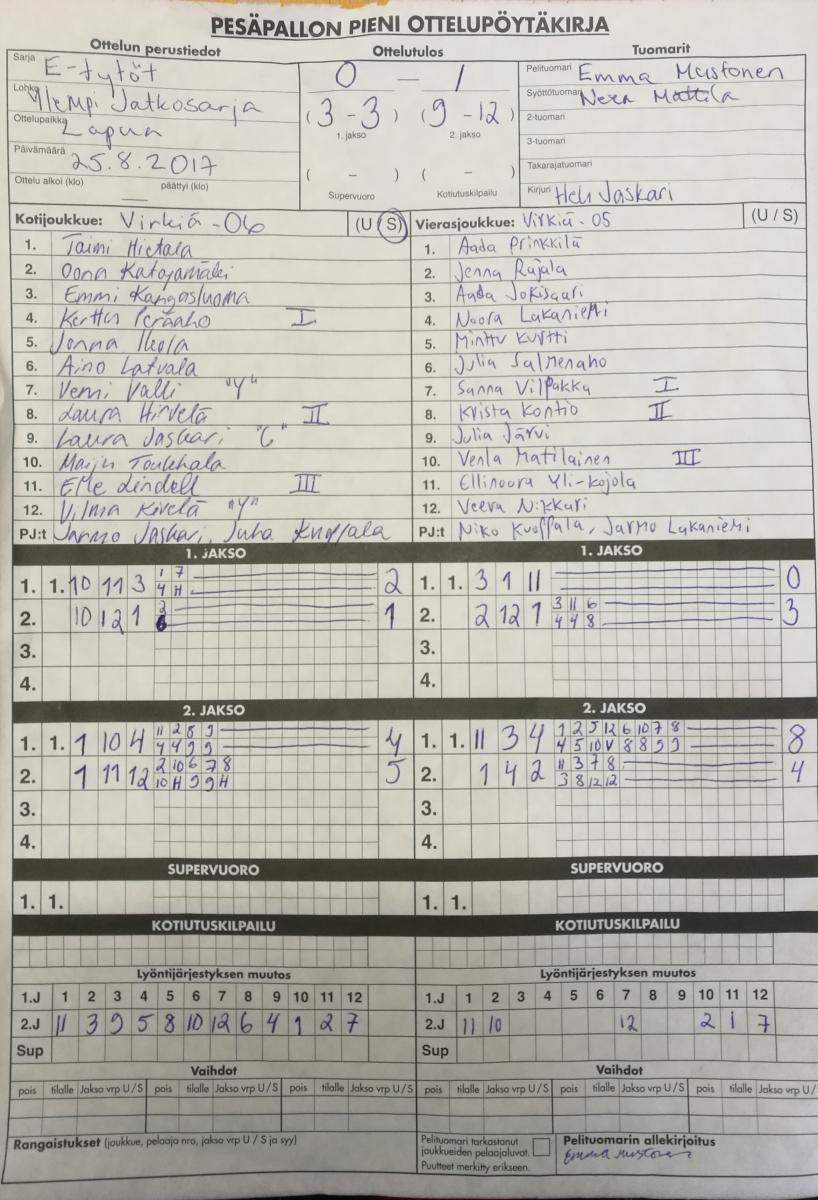 PESÄPALLON PIENI OTTELUPÖYTÄKIRJA
Ottelun perustiedot
Sarja E-tytöt
Lohko Ylempi Jatkosarja
Ottelupaikka Lapua
Päivämäärä 25.8.2017
Ottelu alkoi (klo) — päättyi (klo)
Ottelutulos
0 — 1
(3 - 3) (9 - 12)
1. jakso 2. jakso
( - ) ( - )
Supervuoro Kotiutuskilpailu
Tuomarit
Pelituomari Emma Mustonen
Syöttötuomari Neea Mattila
2-tuomari
3-tuomari
Takarajatuomari
Kirjuri Heli Jaskari
Kotijoukkue: Virkiä -06 (U / S)
1. Taimi Hietala
2. Oona Katajamäki
3. Emmi Kangasluoma
4. Kerttu Peräaho I
5. Jenna Ikola
6. Aino Latvala
7. Venni Valli "Y"
8. Laura Hirvelä II
9. Laura Jaskari "C"
10. Maiju Toukkala
11. Elle Lindell III
12. Vilma Kivelä "Y"
PJ:t Jarmo Jaskari, Juha Kuoppala
Vierasjoukkue: Virkiä - 05 (U / S)
1. Aada Prinkkilä
2. Jenna Rajala
3. Aada Jokisaari
4. Noora Lakaniemi
5. Minttu Kurtti
6. Julia Salmenaho
7. Sanna Vilpakka I
8. Krista Kontio II
9. Julia Järvi
10. Venla Matilainen III
11. Ellinoora Yli-Kojola
12. Veera Nikkari
PJ:t Niko Kuoppala, Jarmo Lakaniemi
1. JAKSO
1. 1. 10 11 3 1 7 2
4 H
2. 10 12 1 2 1
6
3.
4.
1. JAKSO
1. 1. 3 1 11 0
2. 2 12 1 3 11 6 3
4 4 8
3.
4.
2. JAKSO
1. 1. 1 10 4 11 2 8 9 4
4 4 9 9
2. 1 11 12 2 10 6 7 8 5
10 H 9 9 H
3.
4.
2. JAKSO
1. 1. 11 3 4 1 2 5 12 6 10 7 8 8
4 5 10 V 8 8 9 9
2. 1 4 2 11 3 7 8 4
3 8 12 12
3.
4.
SUPERVUORO
1. 1.
SUPERVUORO
1. 1.
KOTIUTUSKILPAILU
KOTIUTUSKILPAILU
Lyöntijärjestyksen muutos
1.J 1 2 3 4 5 6 7 8 9 10 11 12
2.J 11 3 9 5 8 10 12 6 4 1 2 7
Sup
Lyöntijärjestyksen muutos
1.J 1 2 3 4 5 6 7 8 9 10 11 12
2.J 11 10 12 2 1 7
Sup
Vaihdot
pois tilalle Jakso vrp U / S pois tilalle Jakso vrp U / S pois tilalle Jakso vrp U / S
Vaihdot
pois tilalle Jakso vrp U / S pois tilalle Jakso vrp U / S pois tilalle Jakso vrp U /
Rangaistukset (joukkue, pelaaja nro, jakso vrp U / S ja syy)
Pelituomari tarkastanut
joukkueiden pelaajaluvat.
Puutteet merkitty erikseen.
Pelituomarin allekirjoitus
Emma Mustonen